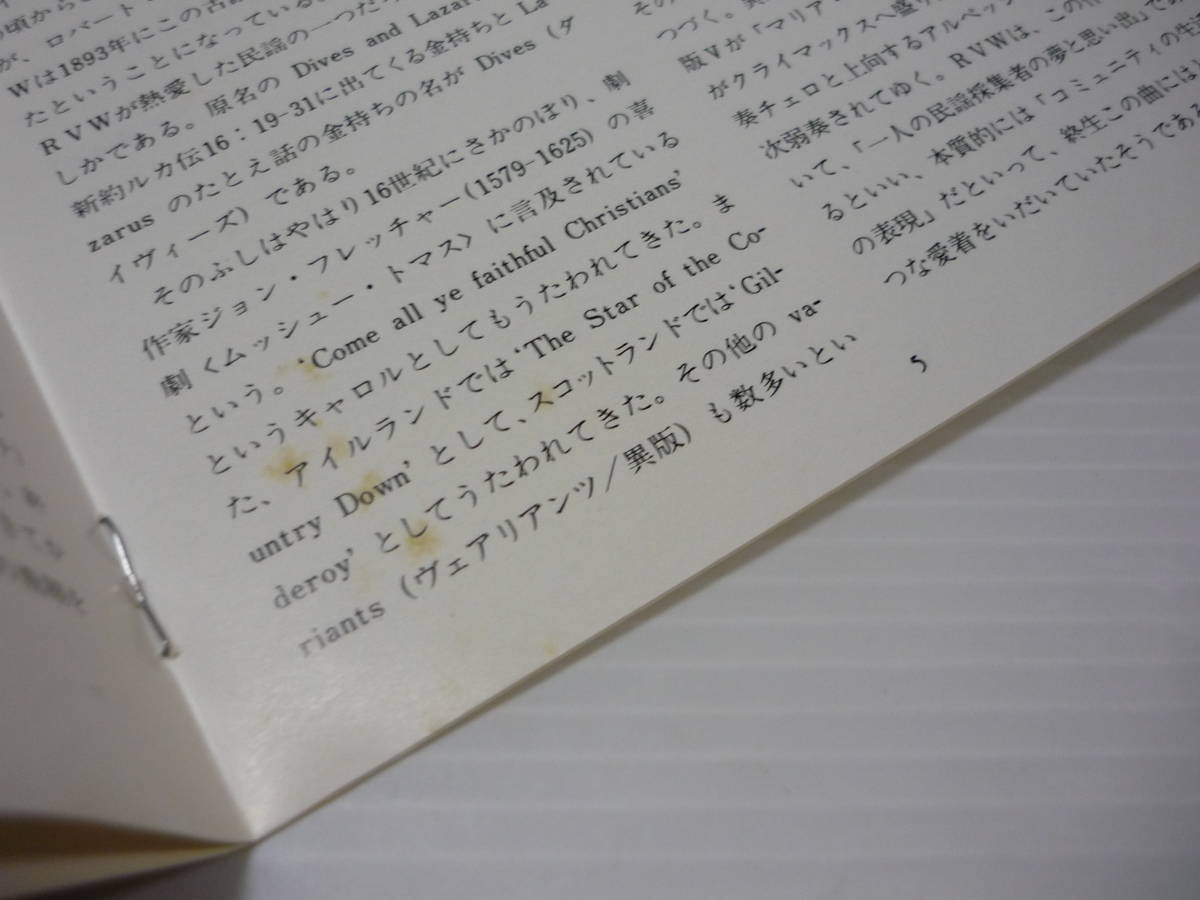 の頃から
が、ロバート・
Wは1893年にこの古
たということになっている。
RVWが熱愛した民謡の一つだ
しかである。原名の Dives and Lazar
新約ルカ伝16：19-31に出てくる金持ちと La-
zarus のたとえ話の金持ちの名が Dives (ダ
ィヴィーズ) である。
そのふしはやはり16世紀にさかのぼり、劇
作家ジョン・フレッチャー(1579-1625) の喜
劇〈ムッシュー・トマス〉に言及されている
という。‘Come all ye faithful Christians’
というキャロルとしてもうたわれてきた。ま
た、アイルランドでは‘The Star of the Co-
untry Down’として、スコットランドでは‘Gil-
deroy’としてうたわれてきた。その他の va-
riants (ヴェアリアンツ／異版) も数多いとい
その
つづく。
版Vが「マリア
がクライマックスへ盛り
奏チェロと上向するアルペッジ
次弱奏されてゆく。RVWは、この作
いて、「一人の民謡採集者の夢と思い出」であ
るといい、本質的には「コミュニティの生活
の表現」だといって、終生この曲には
つな愛着をいだいていたそうである
5